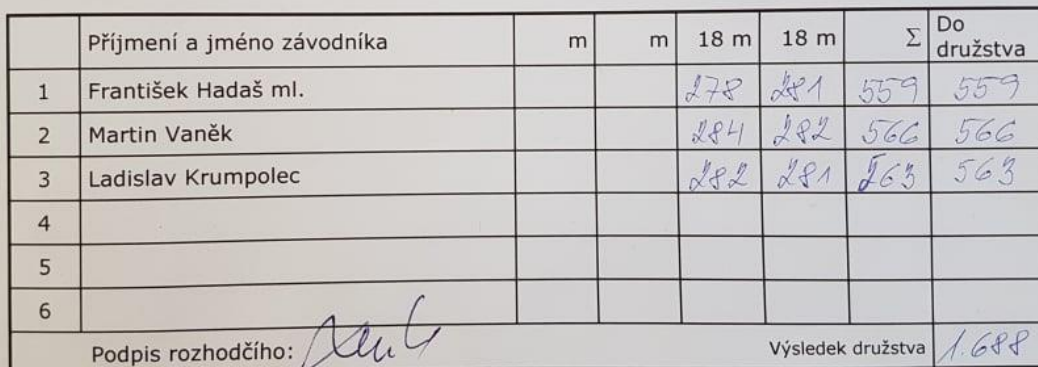 Příjmení a jméno závodníka m m 18 m 18 m Σ Do družstva
1 František Hadaš ml. 278 281 559 559
2 Martin Vaněk 284 282 566 566
3 Ladislav Krumpolec 282 281 563 563
4
5
6
Podpis rozhodčího: Výsledek družstva 1.688